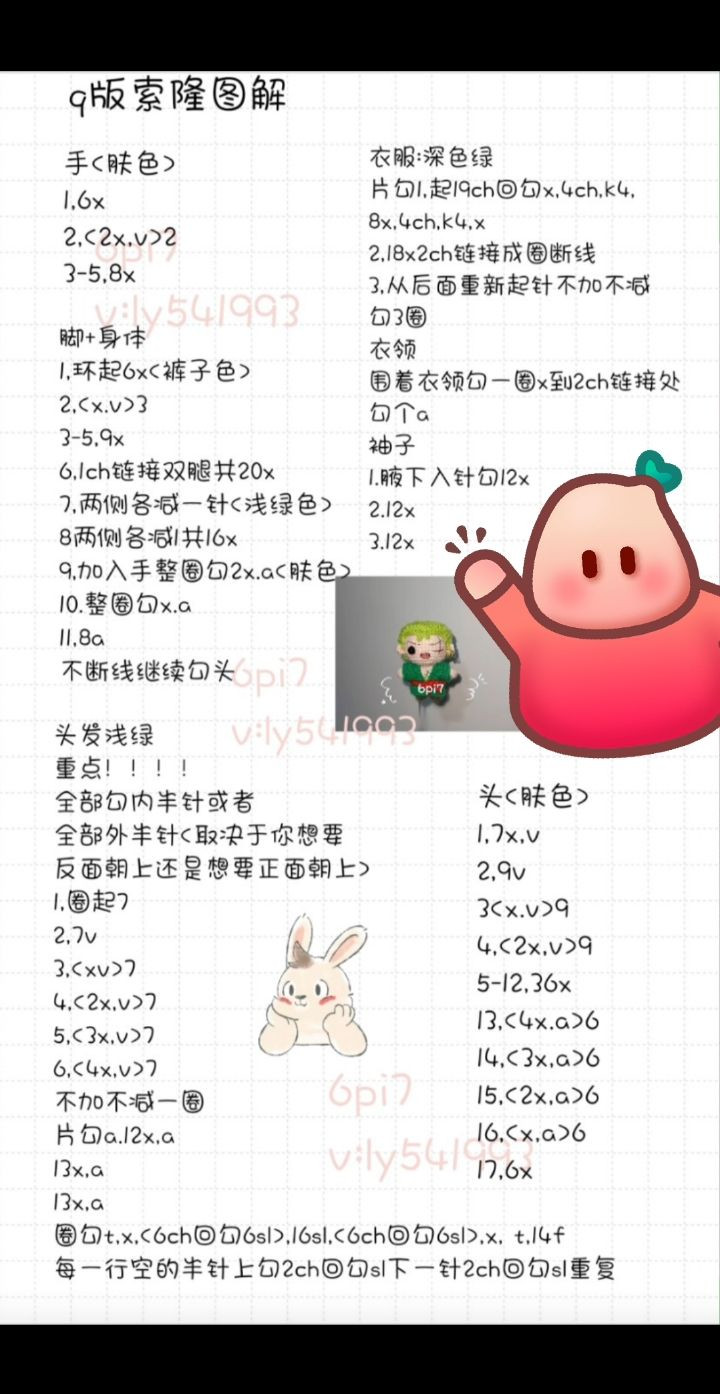 q版索隆图解
手<肤色>
1,6x
2,<2x,v>2
3-5,8x
6pi7
v:ly541993
脚+身体
1,环起6x<裤子色>
2,<x.v>3
3-5,9x
6,1ch链接双腿共20x
7,两侧各减一针<浅绿色>
8两侧各减1共16x
9,加入手整圈勾2x.a<肤色>
10.整圈勾x.a
11,8a
不断线继续勾头
6pi7
v:ly541993
衣服:深色绿
片勾1,起19ch回勾x,4ch,k4,
8x,4ch,k4,x
2,18x2ch链接成圈断线
3,从后面重新起针不加不减
勾3圈
衣领
围着衣领勾一圈x到2ch链接处
勾个a
袖子
1.腋下入针勾12x
2.12x
3.12x
6pi7
头发浅绿
重点!!!!
全部勾内半针或者
全部外半针<取决于你想要
反面朝上还是想要正面朝上>
1,圈起7
2,7v
3,<xv>7
4,<2x,v>7
5,<3x,v>7
6,<4x,v>7
不加不减一圈
片勾a.12x,a
13x,a
13x,a
圈勾t,x,<6ch回勾6sl>,16sl,<6ch回勾6sl>,x, t,14f
每一行空的半针上勾2ch回勾sl下一针2ch回勾sl重复
头<肤色>
1,7x,v
2,9v
3<x.v>9
4,<2x,v>9
5-12,36x
13,<4x.a>6
14,<3x,a>6
15,<2x,a>6
16,<x,a>6
17,6x
6pi7
v:ly541993